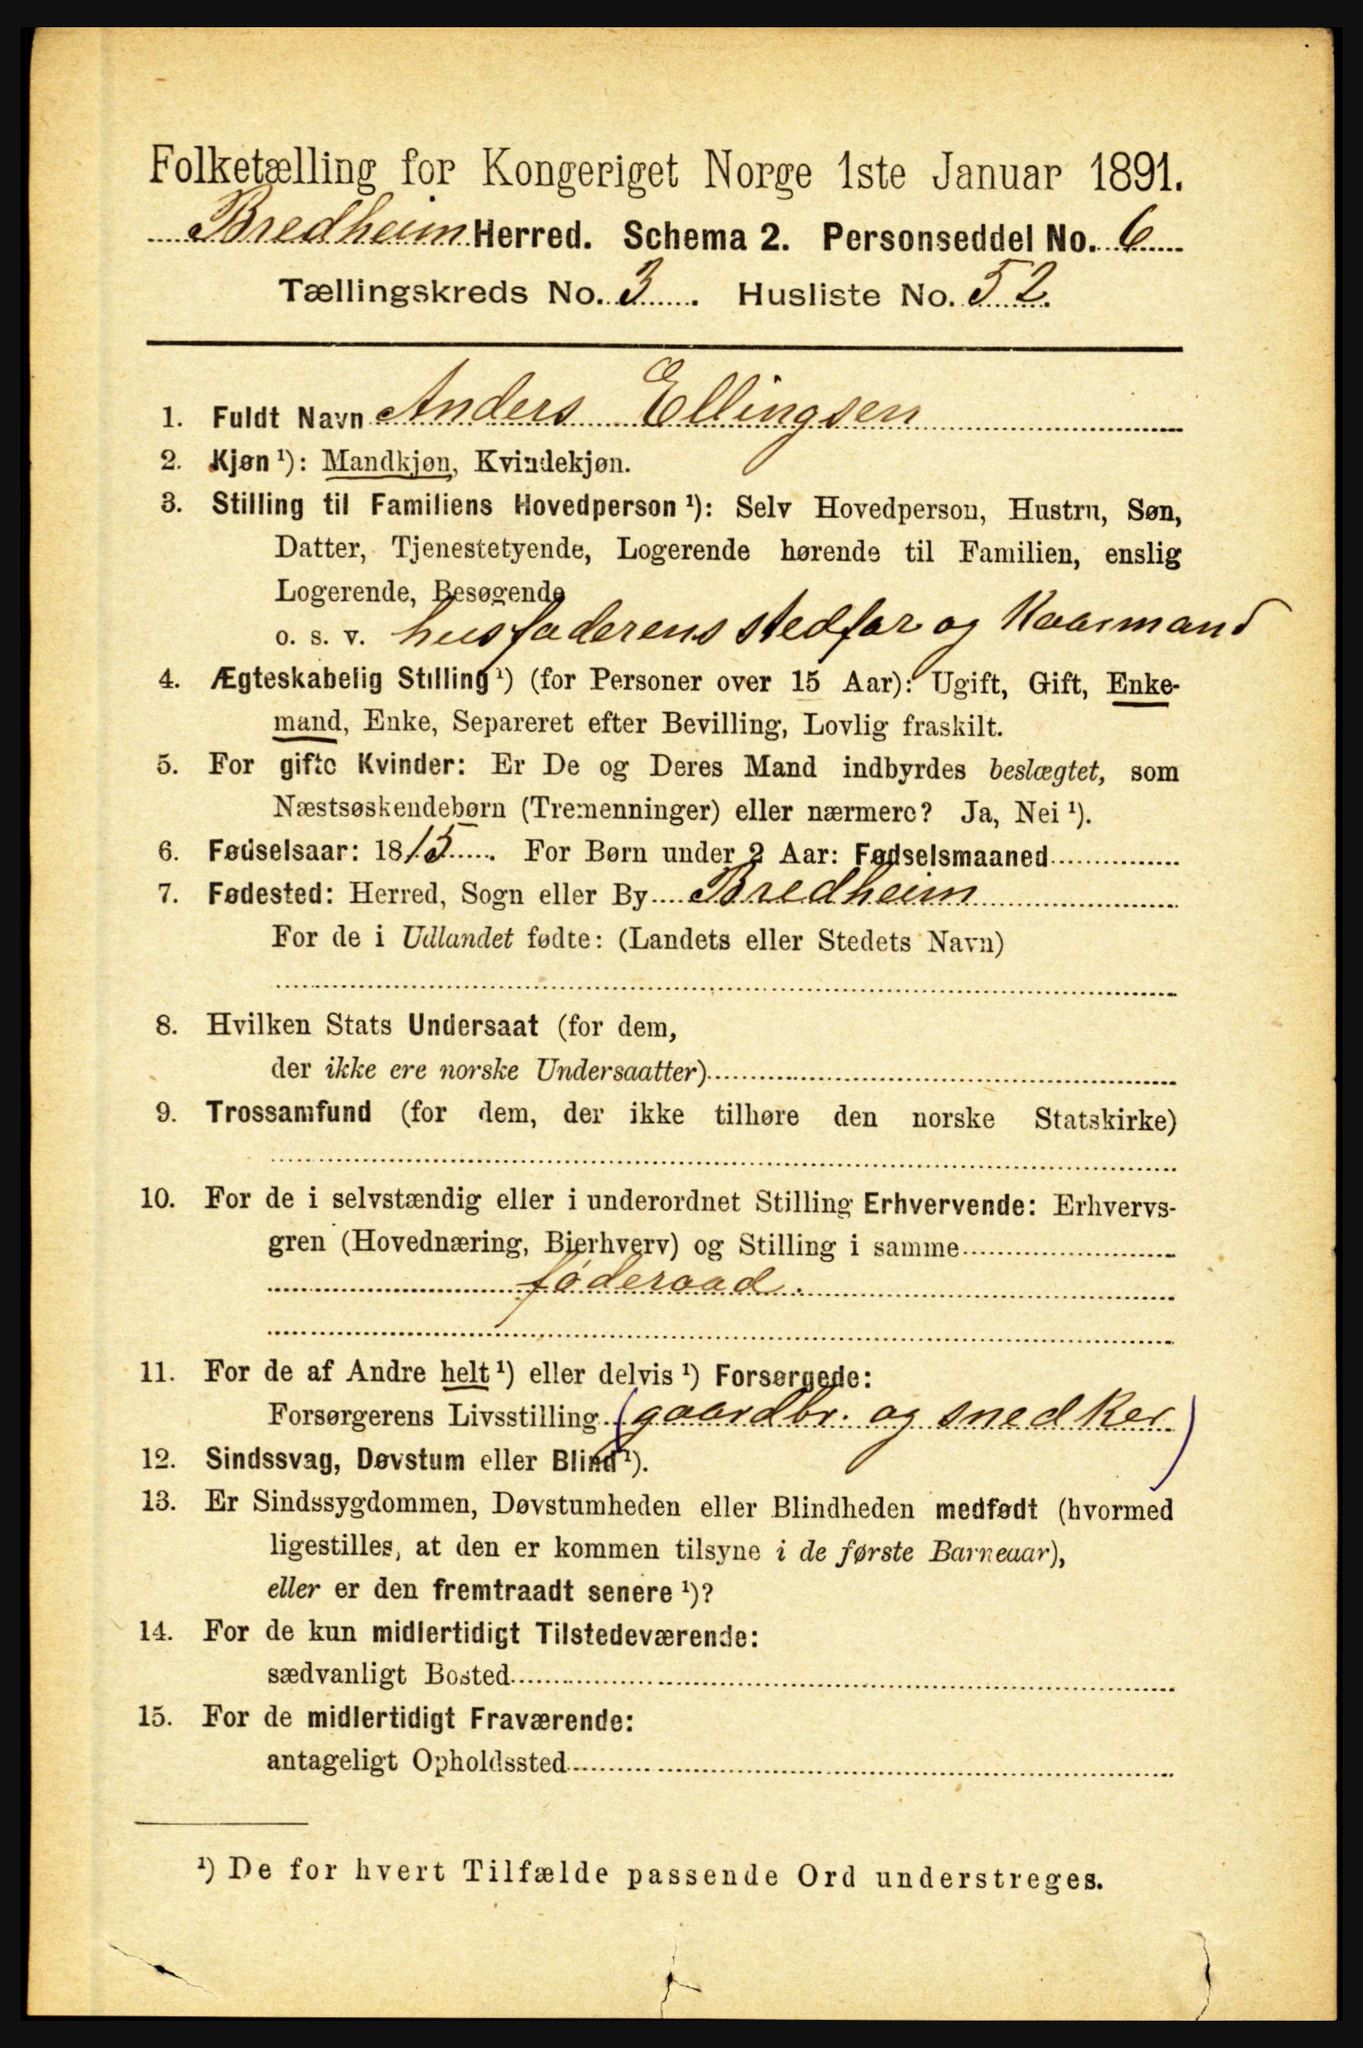 Folketælling for Kongeriget Norge 1ste Januar 1891.
Bredheim Herred. Schema 2. Personseddel No. 6
Tællingskreds No. 3. Husliste No. 52.
1. Fuldt Navn Anders Ellingsen
2. Kjøn ¹): Mandkjøn, Kvindekjøn.
3. Stilling til Familiens Hovedperson ¹): Selv Hovedperson, Hustru, Søn,
Datter, Tjenestetyende, Logerende hørende til Familien, enslig
Logerende, Besøgende
o. s. v. husfaderens stedfar og Kaarmand
4. Ægteskabelig Stilling ¹) (for Personer over 15 Aar): Ugift, Gift, Enke-
mand, Enke, Separeret efter Bevilling, Lovlig fraskilt.
5. For gifte Kvinder: Er De og Deres Mand indbyrdes beslægtet, som
Næstsøskendebørn (Tremenninger) eller nærmere? Ja, Nei ¹).
6. Fødselsaar: 1815. For Børn under 2 Aar: Fødselsmaaned
7. Fødested: Herred, Sogn eller By Bredheim
For de i Udlandet fødte: (Landets eller Stedets Navn)
8. Hvilken Stats Undersaat (for dem,
der ikke ere norske Undersaatter)
9. Trossamfund (for dem, der ikke tilhøre den norske Statskirke)
10. For de i selvstændig eller i underordnet Stilling Erhvervende: Erhvervs-
gren (Hovednæring, Bierhverv) og Stilling i samme
føderaad.
11. For de af Andre helt ¹) eller delvis ¹) Forsørgede:
Forsørgerens Livsstilling (gaardbr. og snedker)
12. Sindssvag, Døvstum eller Blind ¹).
13. Er Sindssygdommen, Døvstumheden eller Blindheden medfødt (hvormed
ligestilles, at den er kommen tilsyne i de første Barneaar),
eller er den fremtraadt senere ¹)?
14. For de kun midlertidigt Tilstedeværende:
sædvanligt Bosted
15. For de midlertidigt Fraværende:
antageligt Opholdssted
¹) De for hvert Tilfælde passende Ord understreges.